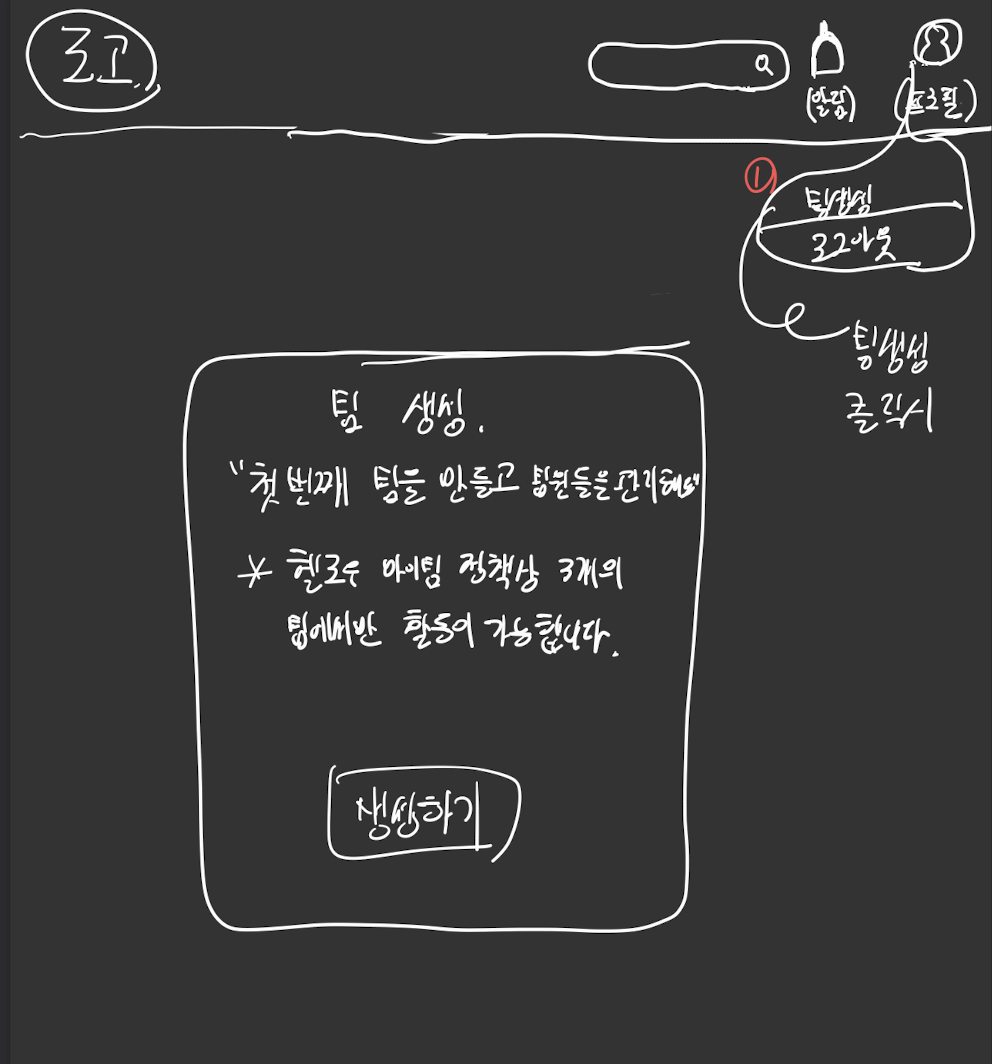 로고
(알람)
(프로필)
①
팀생성
로그아웃
팀생성
클릭시
팀 생성.
"첫번째 팀을 만들고 팀원들을 관리해요"
* 헬로우 아이팀 정책상 3개의
팀에서만 활동이 가능합니다.
생성하기